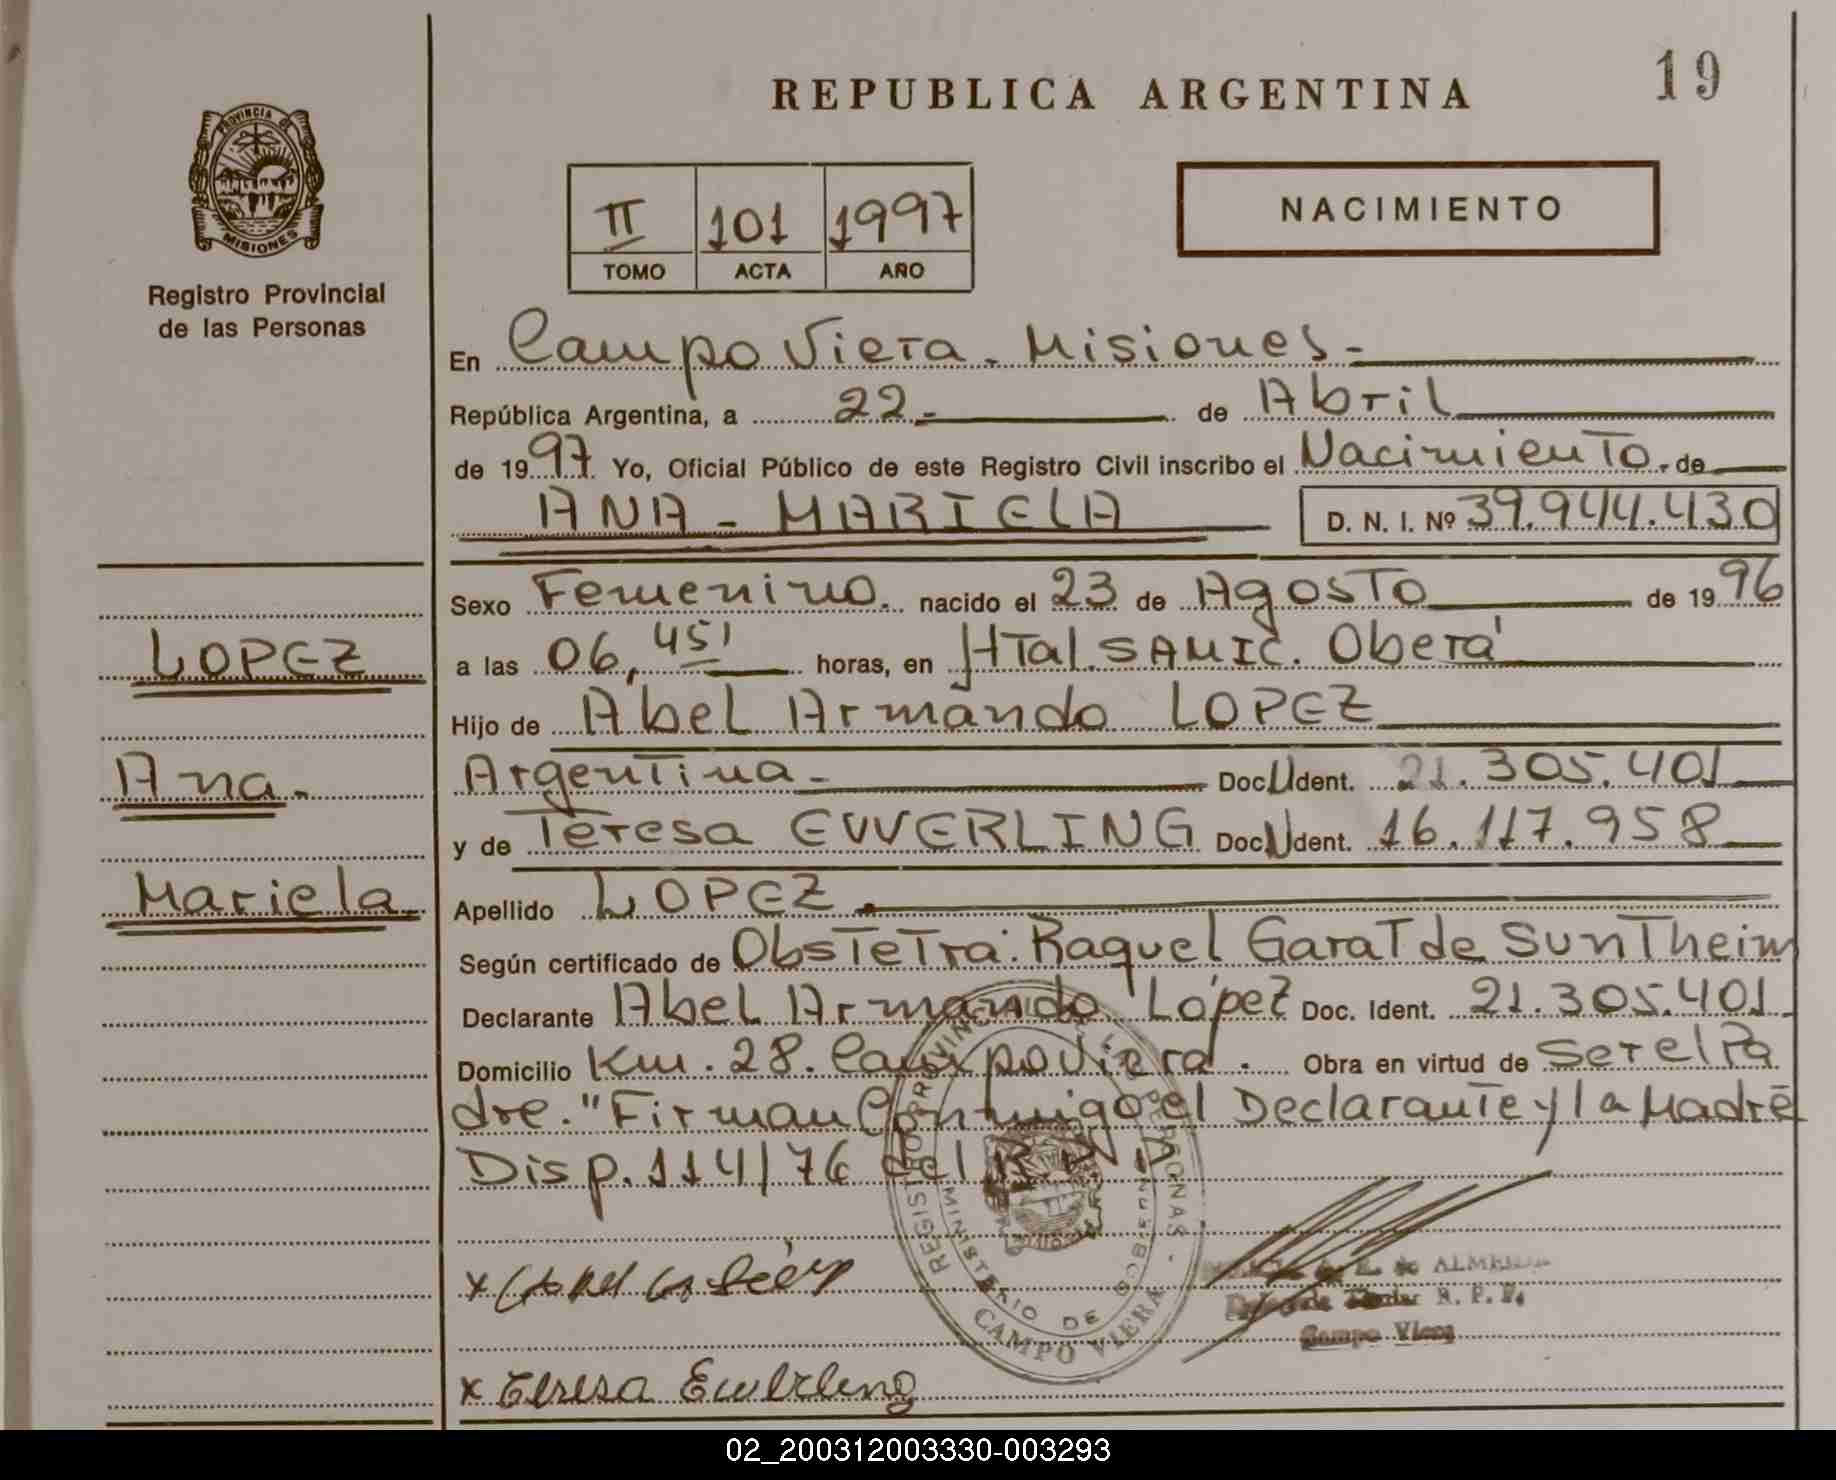 REPUBLICA ARGENTINA
19
PROVINCIA DE
MISIONES
Registro Provincial
de las Personas
II 101 1997
TOMO ACTA AÑO
NACIMIENTO
En Campo Viera - Misiones -
República Argentina, a 22 - de Abril
de 1997 Yo, Oficial Público de este Registro Civil inscribo el Nacimiento de
ANA - MARIELA D. N. I. Nº 39.944.430
Sexo Femenino. nacido el 23 de Agosto de 1996
LOPEZ
a las 06,45' horas, en Htal. SAMIC. Oberá
Hijo de Abel Armando LOPEZ
Ana.
Argentina - Doc U Ident. 21.305.401
y de Teresa EWERLING Doc U Ident. 16.117.958
Mariela
Apellido LOPEZ
Según certificado de Obstetra: Raquel Garat de Suntheim
Declarante Abel Armando López Doc. Ident. 21.305.401
Domicilio Km. 28. Campo Viera. Obra en virtud de Ser el Pa
dre. "Firman Conmigo el Declarante y la Madre
Disp. 114/76 del R. P. P.
REGISTRO PROVINCIAL DE LAS PERSONAS
MINISTERIO DE GOBIERNO
CAMPO VIERA
de ALMEIDA
Titular R. P. P.
Campo Viera
x Teresa Ewerling
02_200312003330-003293